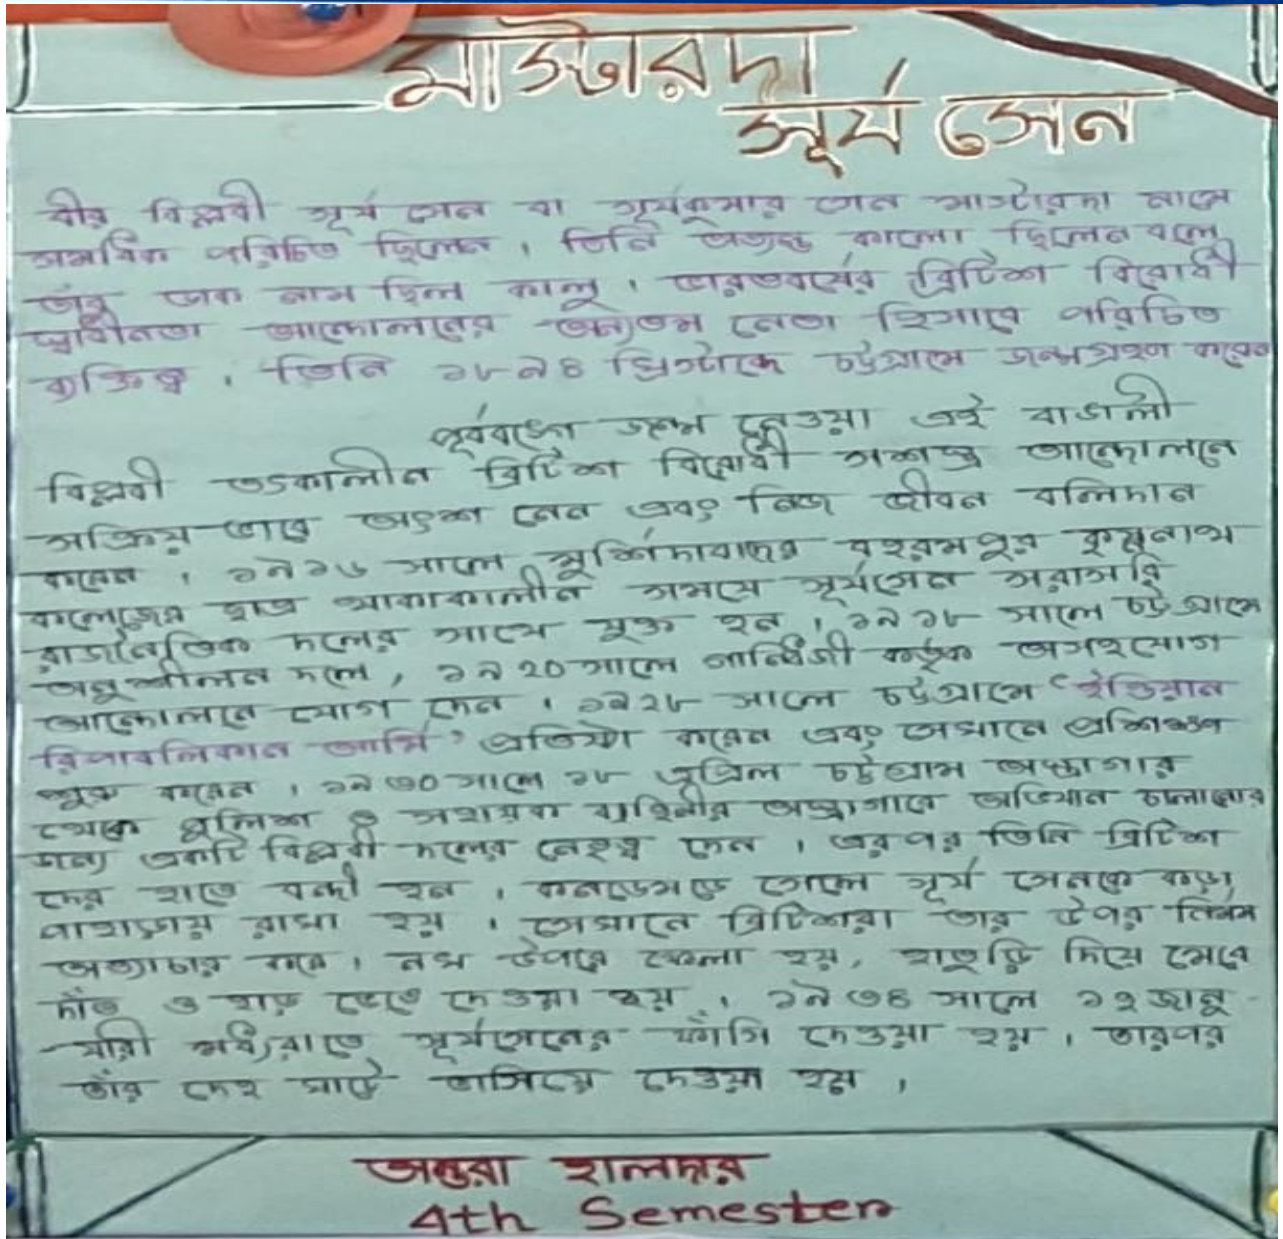 মাস্টারদা
সূর্য সেন
বীর বিপ্লবী সূর্য সেন বা সূর্যকুমার সেন মাস্টারদা নামে
সমধিক পরিচিত ছিলেন। তিনি অত্যন্ত কালো ছিলেন বলে
তাঁর ডাক নাম ছিল কালু। ভারতবর্ষের ব্রিটিশ বিরোধী
স্বাধীনতা আন্দোলনের অন্যতম নেতা হিসাবে পরিচিত
ব্যক্তিত্ব। তিনি ১৮৯৪ খ্রিস্টাব্দে চট্টগ্রামে জন্মগ্রহণ করেন
পূর্ববঙ্গে জন্ম নেওয়া এই বাঙালী
বিপ্লবী তৎকালীন ব্রিটিশ বিরোধী সশস্ত্র আন্দোলনে
সক্রিয় ভাবে অংশ নেন এবং নিজ জীবন বলিদান
করেন। ১৯১৬ সালে মুর্শিদাবাদের বহরমপুর কৃষ্ণনাথ
কলেজের ছাত্র থাকাকালীন সময়ে সূর্যসেন সরাসরি
রাজনৈতিক দলের সাথে যুক্ত হন। ১৯১৮ সালে চট্টগ্রামে
অনুশীলন দলে, ১৯২০ সালে গান্ধিজী কর্তৃক অসহযোগ
আন্দোলনে যোগ দেন। ১৯২৮ সালে চট্টগ্রামে 'ইন্ডিয়ান
রিপাবলিকান আর্মি' প্রতিষ্ঠা করেন এবং সেখানে প্রশিক্ষণ
শুরু করেন। ১৯৩০ সালে ১৮ এপ্রিল চট্টগ্রাম অস্ত্রাগার
থেকে পুলিশ ও সহায়ক বাহিনীর অস্ত্রাগারে অভিযান চালানোর
জন্য একটি বিপ্লবী দলের নেতৃত্ব দেন। এরপর তিনি ব্রিটিশ
দের হাতে বন্দী হন। কনডেমড সেলে সূর্য সেনকে কড়া
পাহারায় রাখা হয়। সেখানে ব্রিটিশরা তার উপর নির্মম
অত্যাচার করে। নখ উপরে ফেলা হয়, হাতুড়ি দিয়ে মেরে
দাঁত ও হাড় ভেঙে দেওয়া হয়। ১৯৩৪ সালে ১২ জানু-
-য়ারী মধ্যরাতে সূর্যসেনের ফাঁসি দেওয়া হয়। তারপর
তাঁর দেহ ভাসিয়ে দেওয়া হয়।
অন্তরা হালদার
4th Semester